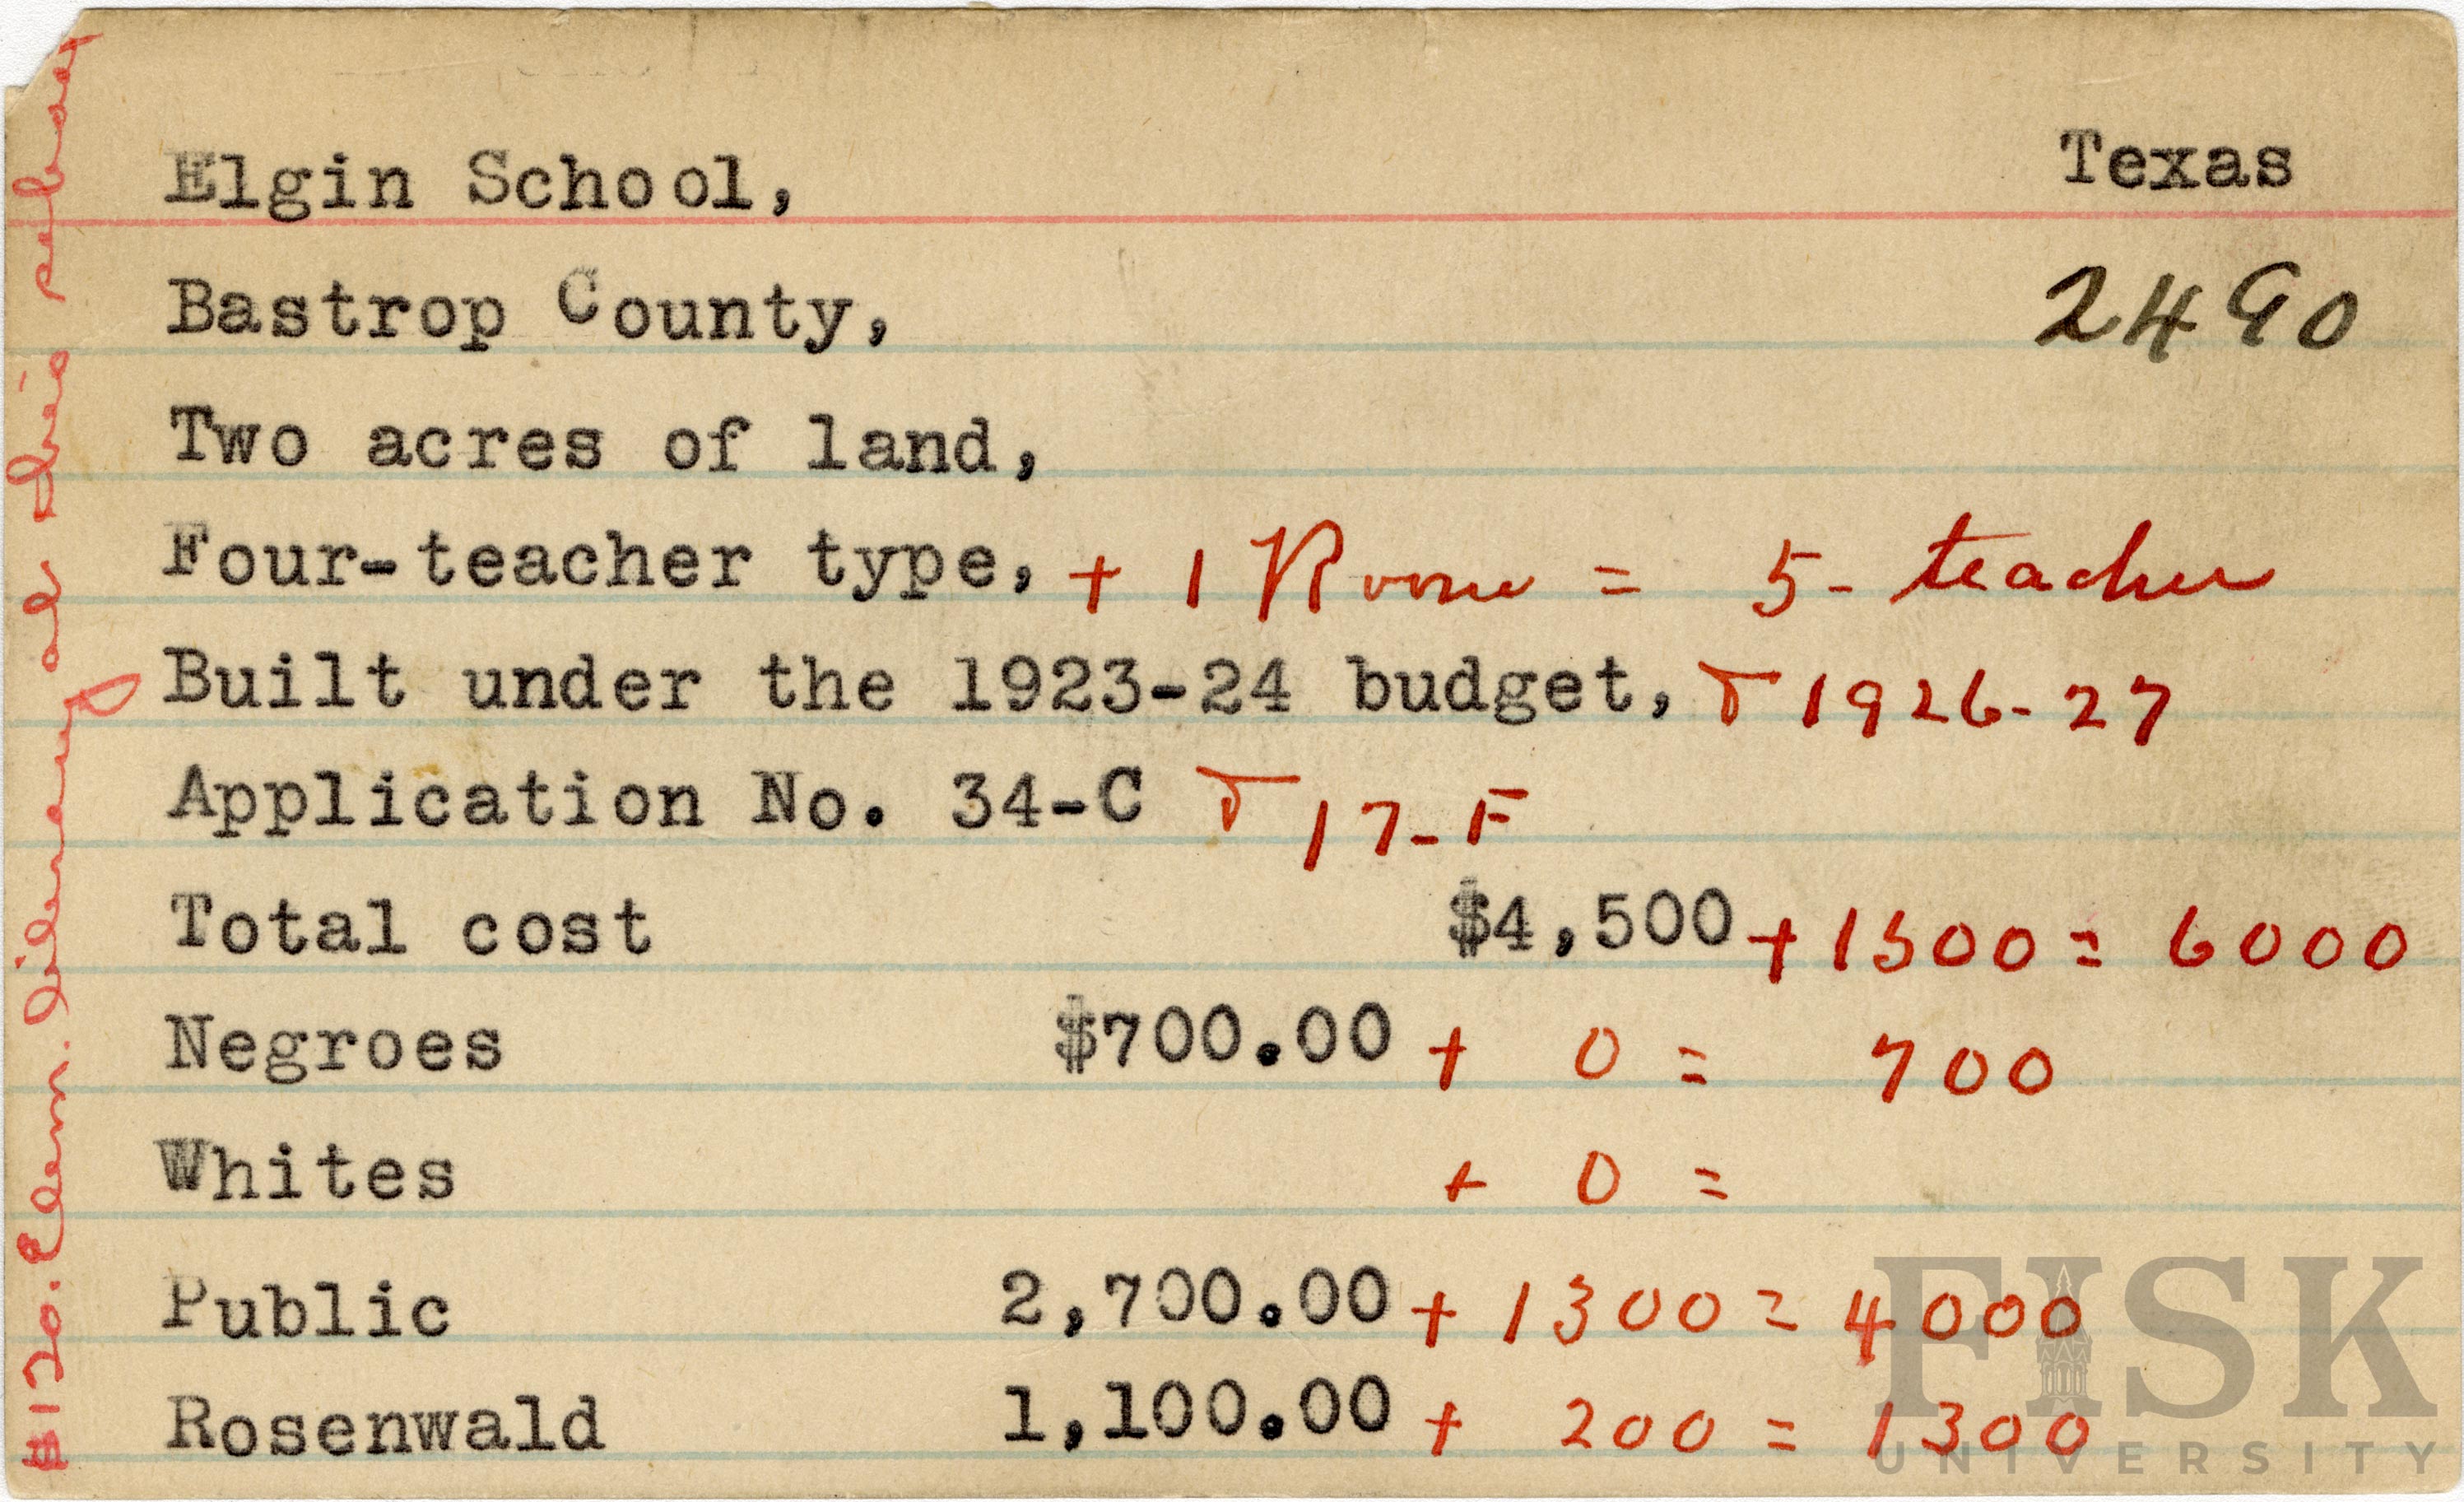 Elgin School, Texas
Bastrop County, 2490
Two acres of land,
Four-teacher type, + 1 Room = 5- teacher
Built under the 1923-24 budget, & 1926-27
Application No. 34-C & 17-F
Total cost $4,500 + 1500 = 6000
Negroes $700.00 + 0 = 700
Whites + 0 =
Public 2,700.00 + 1300 = 4000
Rosenwald 1,100.00 + 200 = 1300
$120. Elem. library at this school
FISK
UNIVERSITY